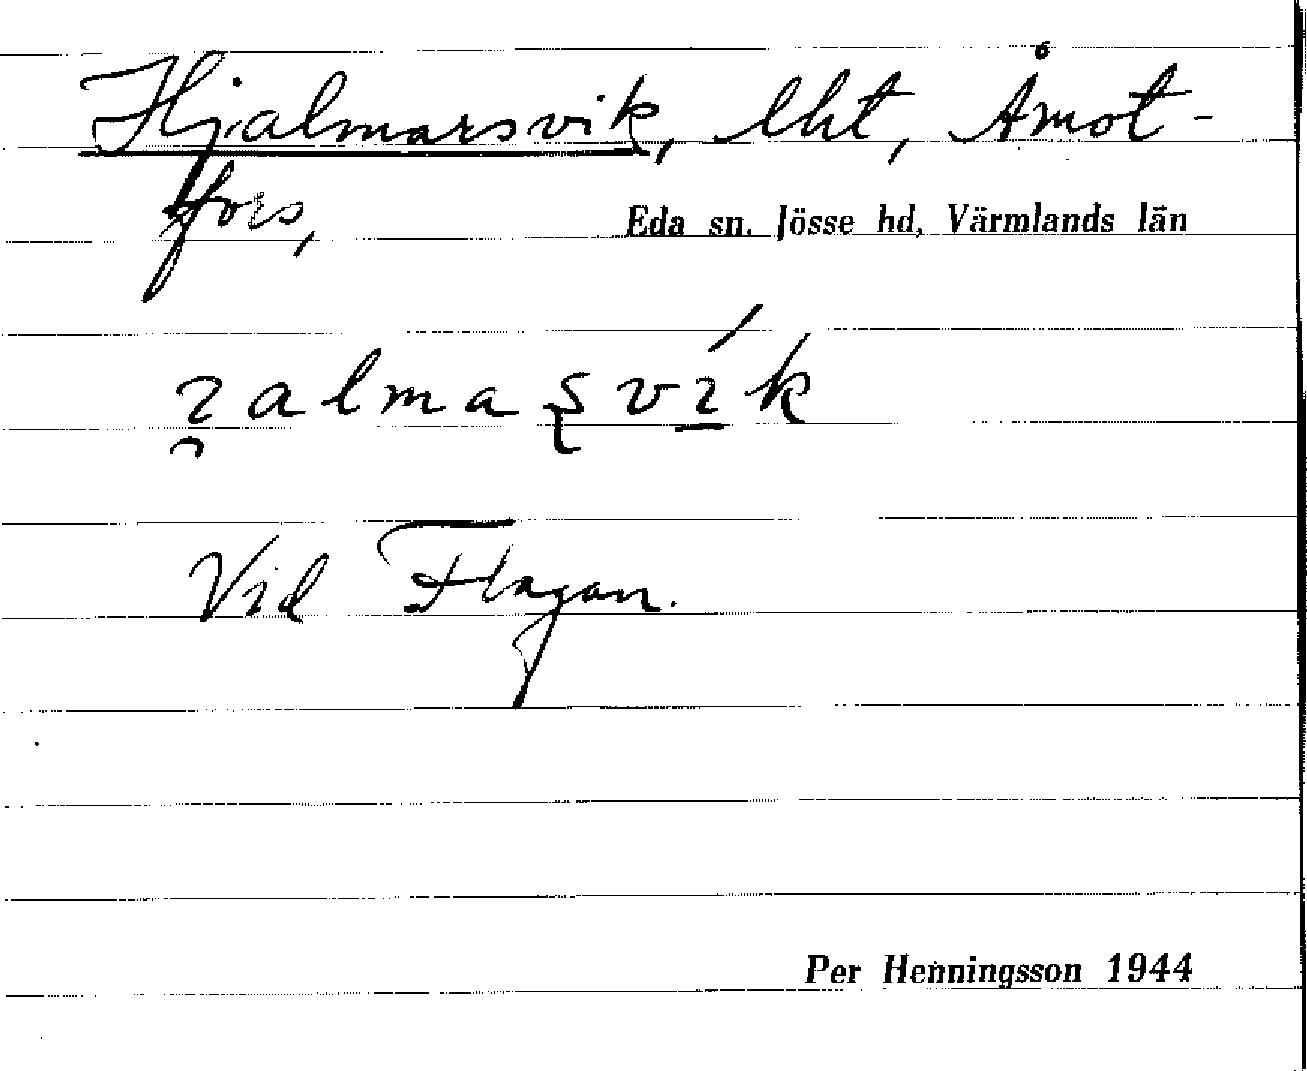 Hjalmarsvik, lht, Åmot-
fors,
Eda sn. Jösse hd, Värmlands län
Vid Flagan.
Per Henningsson 1944